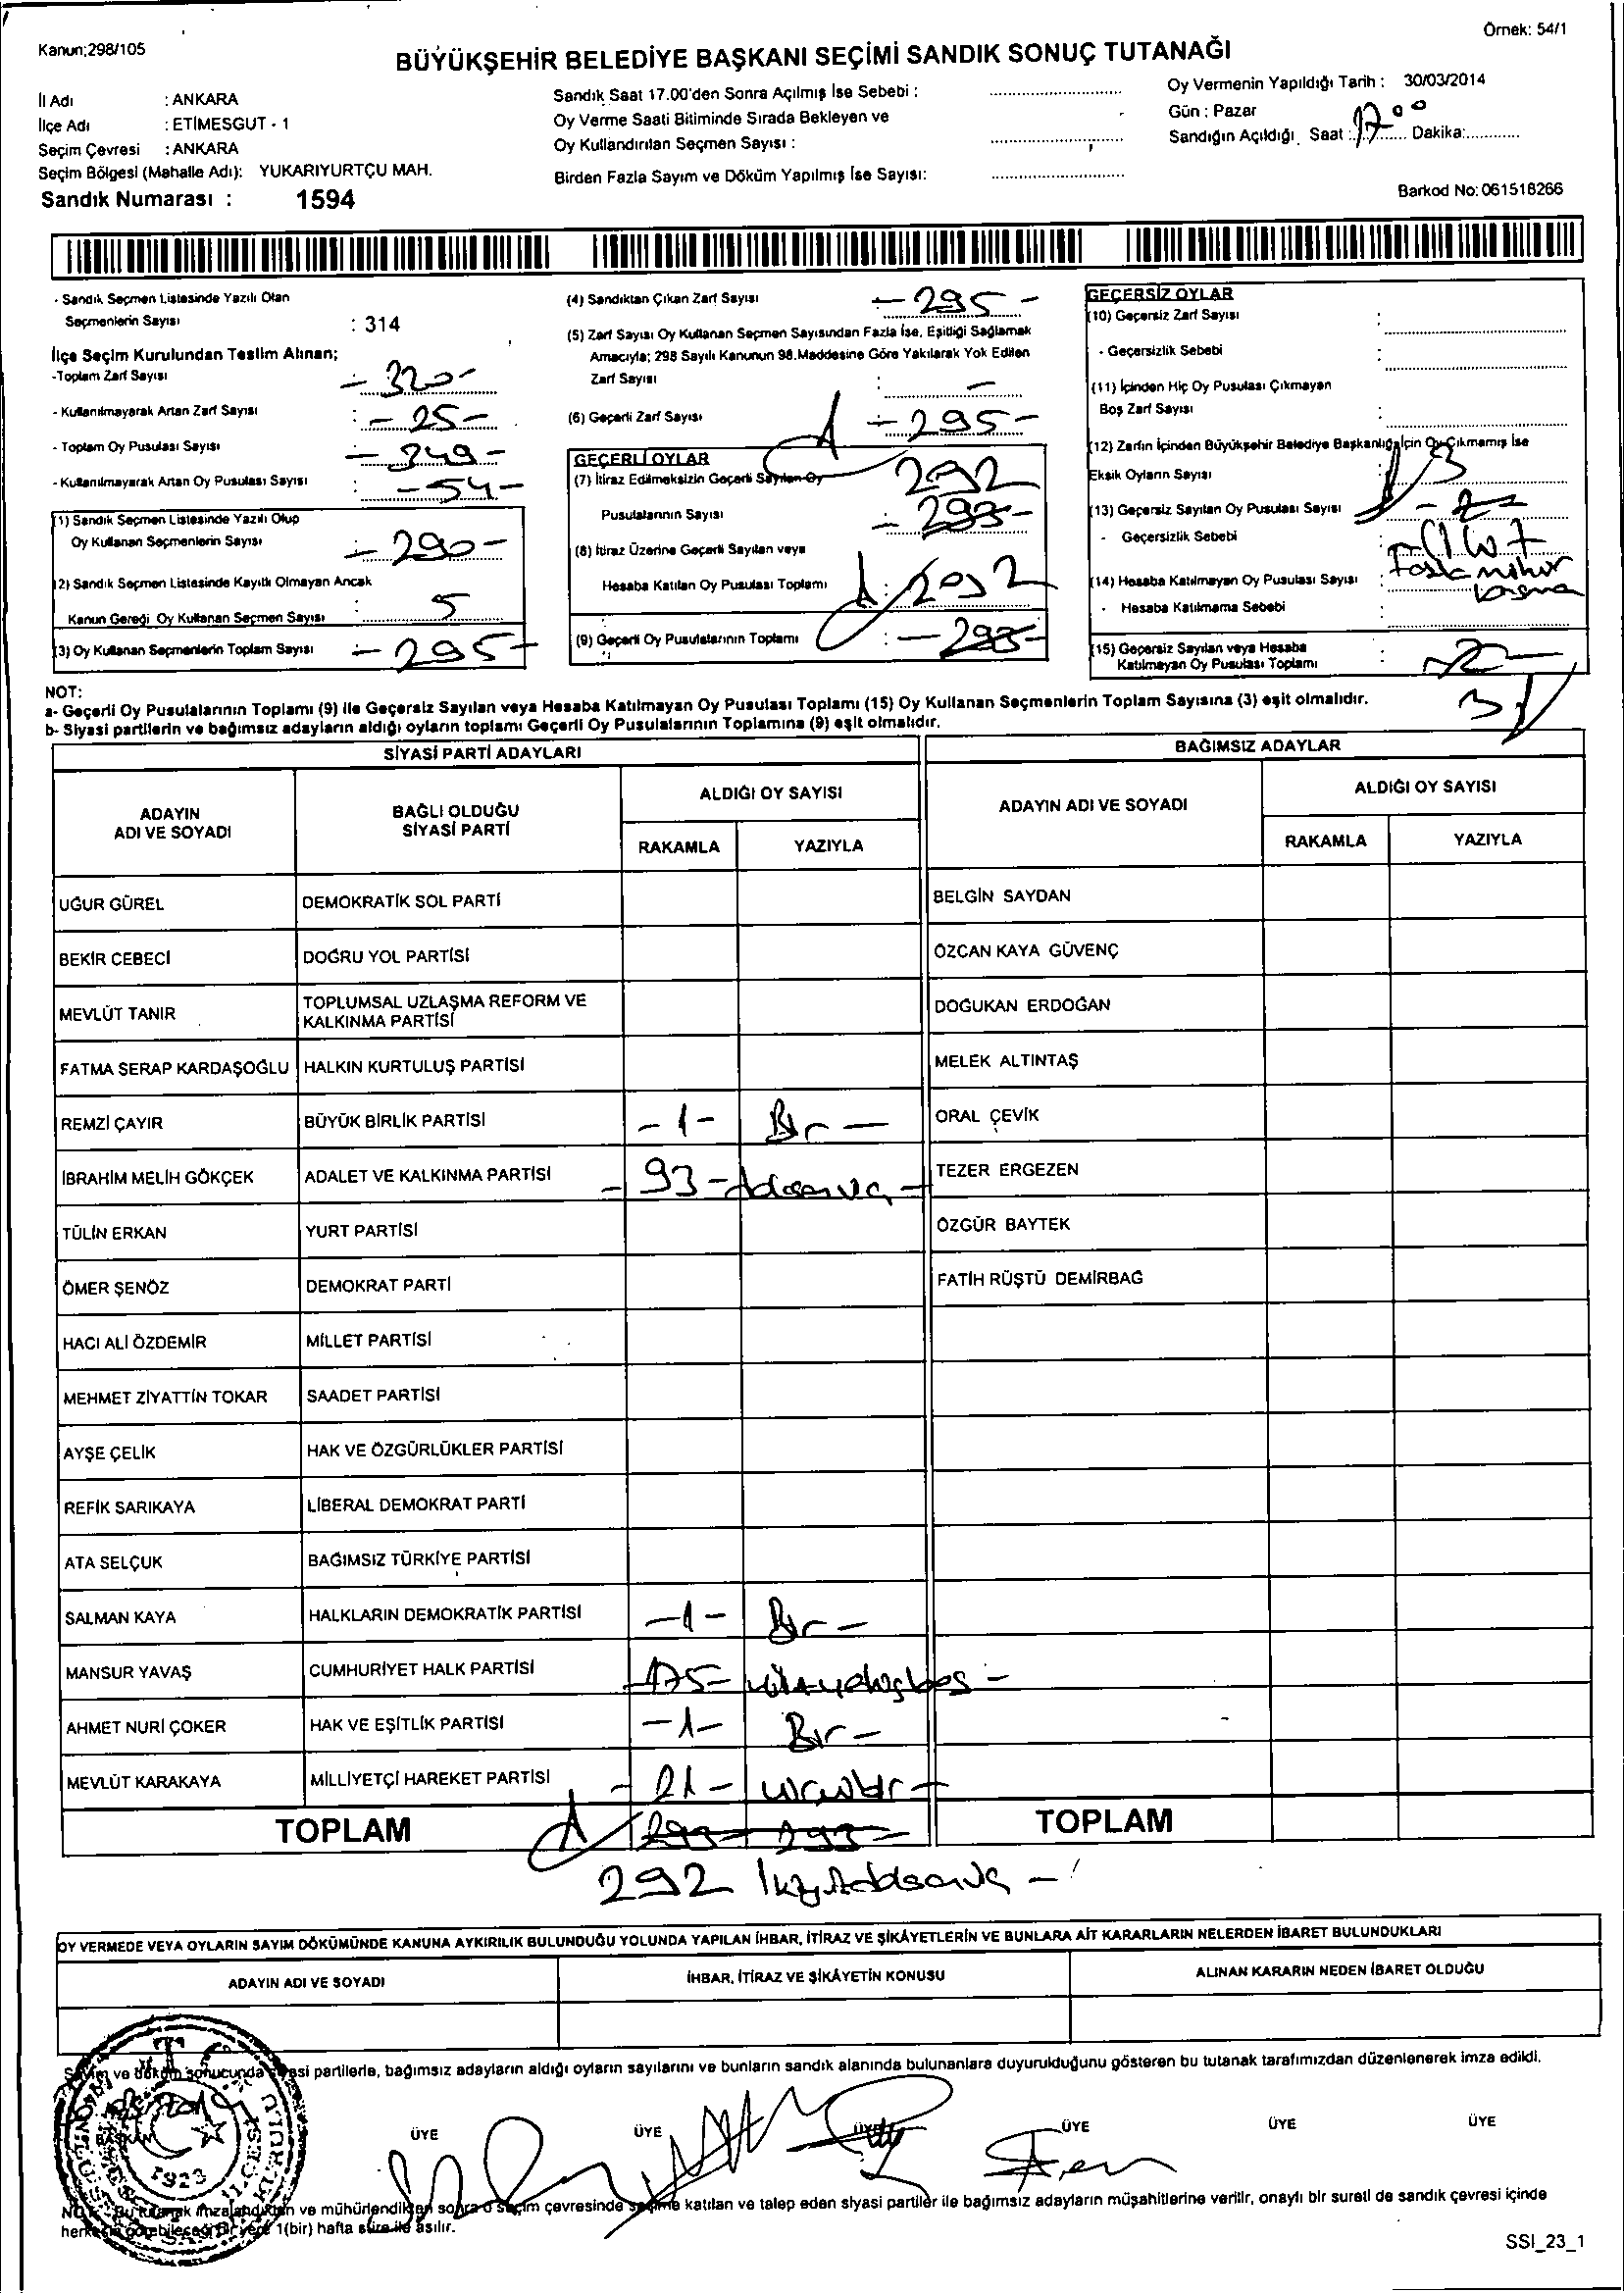 Kanun;298/105
Örnek: 54/1
BÜYÜKŞEHİR BELEDİYE BAŞKANI SEÇİMİ SANDIK SONUÇ TUTANAĞI
İl Adı : ANKARA
İlçe Adı : ETİMESGUT - 1
Seçim Çevresi : ANKARA
Seçim Bölgesi (Mahalle Adı): YUKARIYURTÇU MAH.
Sandık Numarası : 1594
Sandık Saat 17.00'den Sonra Açılmış İse Sebebi :
Oy Verme Saati Bitiminde Sırada Bekleyen ve
Oy Kullandırılan Seçmen Sayısı :
Birden Fazla Sayım ve Döküm Yapılmış İse Sayısı:
Oy Vermenin Yapıldığı Tarih : 30/03/2014
Gün : Pazar
Sandığın Açıldığı Saat : 17 00 Dakika:
Barkod No: 061518266
- Sandık Seçmen Listesinde Yazılı Olan
Seçmenlerin Sayısı : 314
İlçe Seçim Kurulundan Teslim Alınan;
-Toplam Zarf Sayısı - 320 -
- Kullanılmayarak Artan Zarf Sayısı : - 25 -
- Toplam Oy Pusulası Sayısı - 349 -
- Kullanılmayarak Artan Oy Pusulası Sayısı : - 54 -
(1) Sandık Seçmen Listesinde Yazılı Olup
Oy Kullanan Seçmenlerin Sayısı - 290 -
(2) Sandık Seçmen Listesinde Kayıtlı Olmayan Ancak
Kanun Gereği Oy Kullanan Seçmen Sayısı : 5
(3) Oy Kullanan Seçmenlerin Toplam Sayısı : - 295 -
(4) Sandıktan Çıkan Zarf Sayısı - 295 -
(5) Zarf Sayısı Oy Kullanan Seçmen Sayısından Fazla İse, Eşitliği Sağlamak
Amacıyla; 298 Sayılı Kanunun 98.Maddesine Göre Yakılarak Yok Edilen
Zarf Sayısı : -
(6) Geçerli Zarf Sayısı : - 295 -
GEÇERLİ OYLAR
(7) İtiraz Edilmeksizin Geçerli Sayılan Oy 292
Pusulalarının Sayısı - 293 -
(8) İtiraz Üzerine Geçerli Sayılan veya
Hesaba Katılan Oy Pusulası Toplamı : 292
(9) Geçerli Oy Pusulalarının Toplamı : - 293 -
GEÇERSİZ OYLAR
(10) Geçersiz Zarf Sayısı :
- Geçersizlik Sebebi :
(11) İçinden Hiç Oy Pusulası Çıkmayan
Boş Zarf Sayısı :
(12) Zarfın İçinden Büyükşehir Belediye Başkanlığı İçin Oy Çıkmamış İse
Eksik Oyların Sayısı : 3
(13) Geçersiz Sayılan Oy Pusulası Sayısı - 2 -
- Geçersizlik Sebebi :
(14) Hesaba Katılmayan Oy Pusulası Sayısı :
- Hesaba Katılmama Sebebi :
(15) Geçersiz Sayılan veya Hesaba
Katılmayan Oy Pusulası Toplamı : - 2 -
3
NOT:
a- Geçerli Oy Pusulalarının Toplamı (9) ile Geçersiz Sayılan veya Hesaba Katılmayan Oy Pusulası Toplamı (15) Oy Kullanan Seçmenlerin Toplam Sayısına (3) eşit olmalıdır.
b- Siyasi partilerin ve bağımsız adayların aldığı oyların toplamı Geçerli Oy Pusulalarının Toplamına (9) eşit olmalıdır.
SİYASİ PARTİ ADAYLARI
BAĞIMSIZ ADAYLAR
ADAYIN ADI VE SOYADI
BAĞLI OLDUĞU SİYASİ PARTİ
ALDIĞI OY SAYISI
RAKAMLA YAZIYLA
ADAYIN ADI VE SOYADI
ALDIĞI OY SAYISI
RAKAMLA YAZIYLA
UĞUR GÜREL DEMOKRATİK SOL PARTİ BELGİN SAYDAN
BEKİR CEBECİ DOĞRU YOL PARTİSİ ÖZCAN KAYA GÜVENÇ
MEVLÜT TANIR TOPLUMSAL UZLAŞMA REFORM VE KALKINMA PARTİSİ DOĞUKAN ERDOĞAN
FATMA SERAP KARDAŞOĞLU HALKIN KURTULUŞ PARTİSİ MELEK ALTINTAŞ
REMZİ ÇAYIR BÜYÜK BİRLİK PARTİSİ - 1 - Bir - ORAL ÇEVİK
İBRAHİM MELİH GÖKÇEK ADALET VE KALKINMA PARTİSİ - 93 - TEZER ERGEZEN
TÜLİN ERKAN YURT PARTİSİ ÖZGÜR BAYTEK
ÖMER ŞENÖZ DEMOKRAT PARTİ FATİH RÜŞTÜ DEMİRBAĞ
HACI ALİ ÖZDEMİR MİLLET PARTİSİ
MEHMET ZİYATTİN TOKAR SAADET PARTİSİ
AYŞE ÇELİK HAK VE ÖZGÜRLÜKLER PARTİSİ
REFİK SARIKAYA LİBERAL DEMOKRAT PARTİ
ATA SELÇUK BAĞIMSIZ TÜRKİYE PARTİSİ
SALMAN KAYA HALKLARIN DEMOKRATİK PARTİSİ - 1 - Bir -
MANSUR YAVAŞ CUMHURİYET HALK PARTİSİ - 175 -
AHMET NURİ ÇOKER HAK VE EŞİTLİK PARTİSİ - 1 - Bir -
MEVLÜT KARAKAYA MİLLİYETÇİ HAREKET PARTİSİ - 21 -
TOPLAM 293 - 293 - TOPLAM
292
OY VERMEDE VEYA OYLARIN SAYIM DÖKÜMÜNDE KANUNA AYKIRILIK BULUNDUĞU YOLUNDA YAPILAN İHBAR, İTİRAZ VE ŞİKÂYETLERİN VE BUNLARA AİT KARARLARIN NELERDEN İBARET BULUNDUKLARI
ADAYIN ADI VE SOYADI İHBAR, İTİRAZ VE ŞİKÂYETİN KONUSU ALINAN KARARIN NEDEN İBARET OLDUĞU
Sayım ve döküm sonucunda siyasi partilerle, bağımsız adayların aldığı oyların sayılarını ve bunların sandık alanında bulunanlara duyurulduğunu gösteren bu tutanak tarafımızdan düzenlenerek imza edildi.
BAŞKAN ÜYE ÜYE ÜYE ÜYE ÜYE ÜYE
T C
1923
NOT: Bu tutanak imzalandıktan ve mühürlendikten sonra o seçim çevresinde seçime katılan ve talep eden siyasi partiler ile bağımsız adayların müşahitlerine verilir, onaylı bir sureti de sandık çevresi içinde
herkesin görebileceği bir yere 1(bir) hafta süre ile asılır.
SSI_23_1